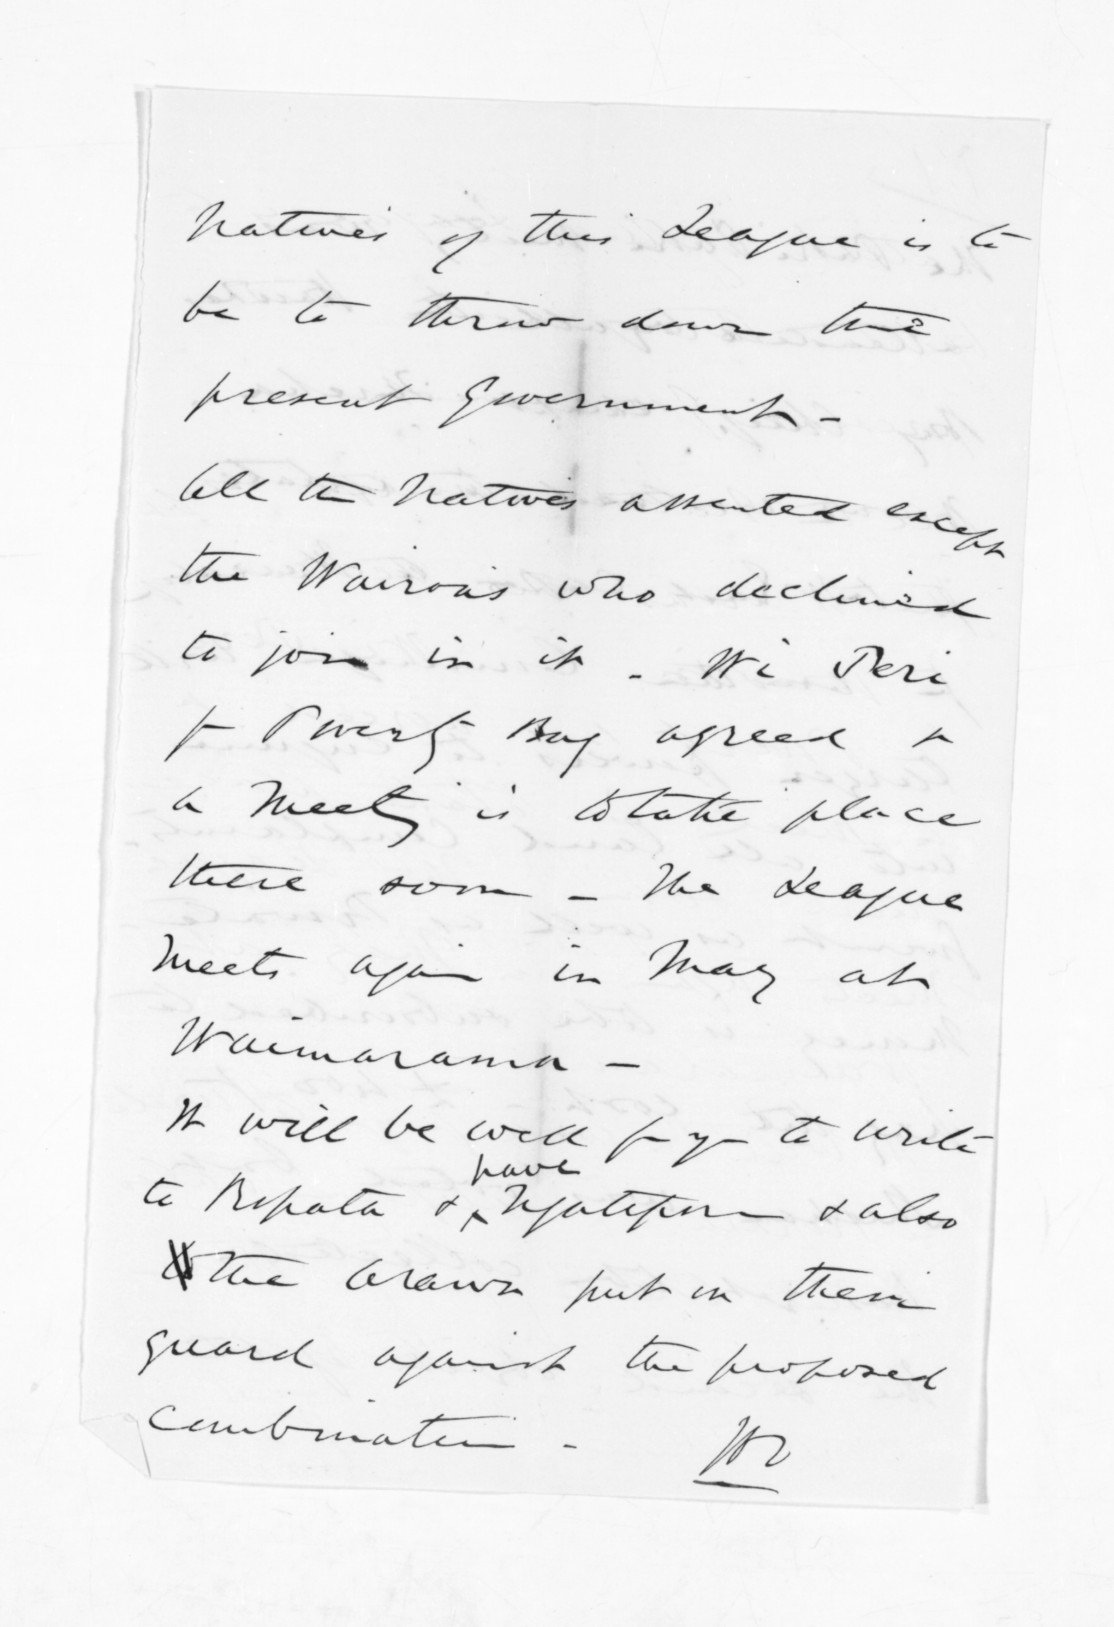 Natives of this League is to
be to throw down the
present Government -
All the Natives assented except
the Wairoas who declined
to join in it - Wi Peri
fr Poverty Bay agreed &
a Meetg is to take place
there soon - The League
Meets again in May at
Waimarama -
It will be well for you to write
to Ropata & have Ngatiporou & also
the Arawa put on their
guard against the proposed
combination -